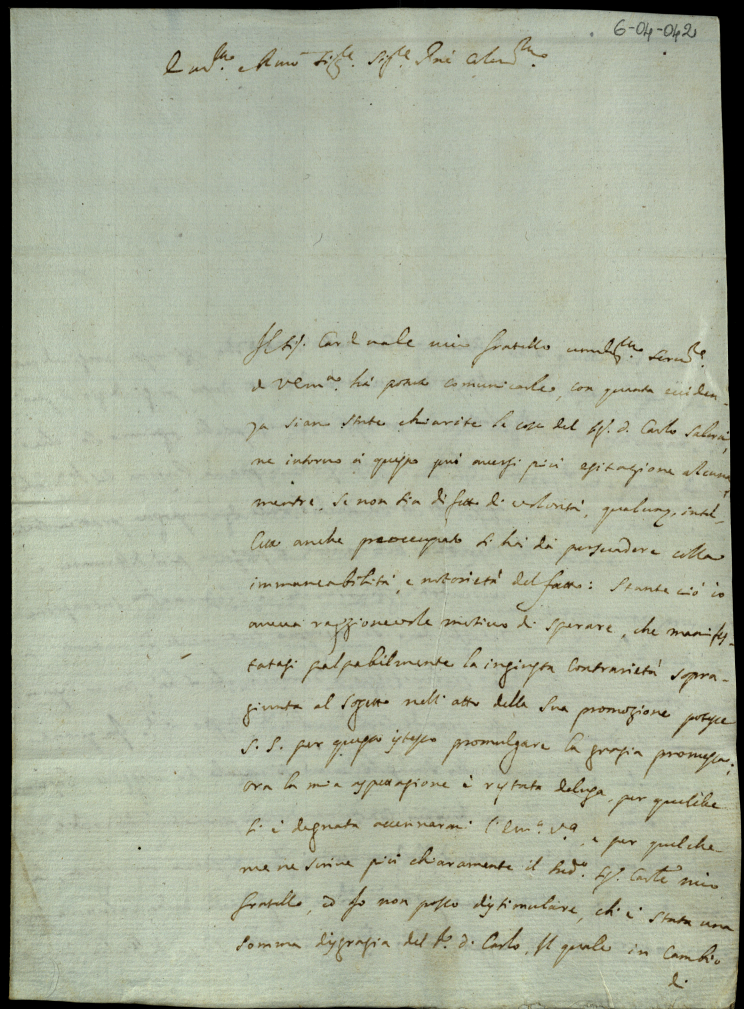 6-04-042
Sig.re Sig.re
Il Sig. Cardinale mio fratello
di V. Em.a ha potuto comunicarle, con quanta eviden-
za siano state chiarite le cose del Sig. D. Carlo
ne intorno a questo può aversi più esitazione alcuna,
mentre, se non sia difetto di volontà, qualunq. intel-
letto anche preoccupato si ha da persuadere colla
immancabilità, e notorietà del fatto: Stante ciò io
aveva raggionevole motivo di sperare, che manifes-
tatasi palpabilmente la ingiusta contrarietà sopra-
giunta al Sogetto nell'atto della sua promozione potesse
S. S. per questo istesso promulgare la grazia promessa;
ora la mia aspettazione è restata delusa, per quelche
si è degnata accennarmi l'Em.a V.a, e per quelche
me ne scrive più chiaramente il Sud.o Sig. Card.le mio
fratello, ed Io non posso dissimulare, ch'è stata una
somma disgrazia del S.r D. Carlo, il quale in cambio
di